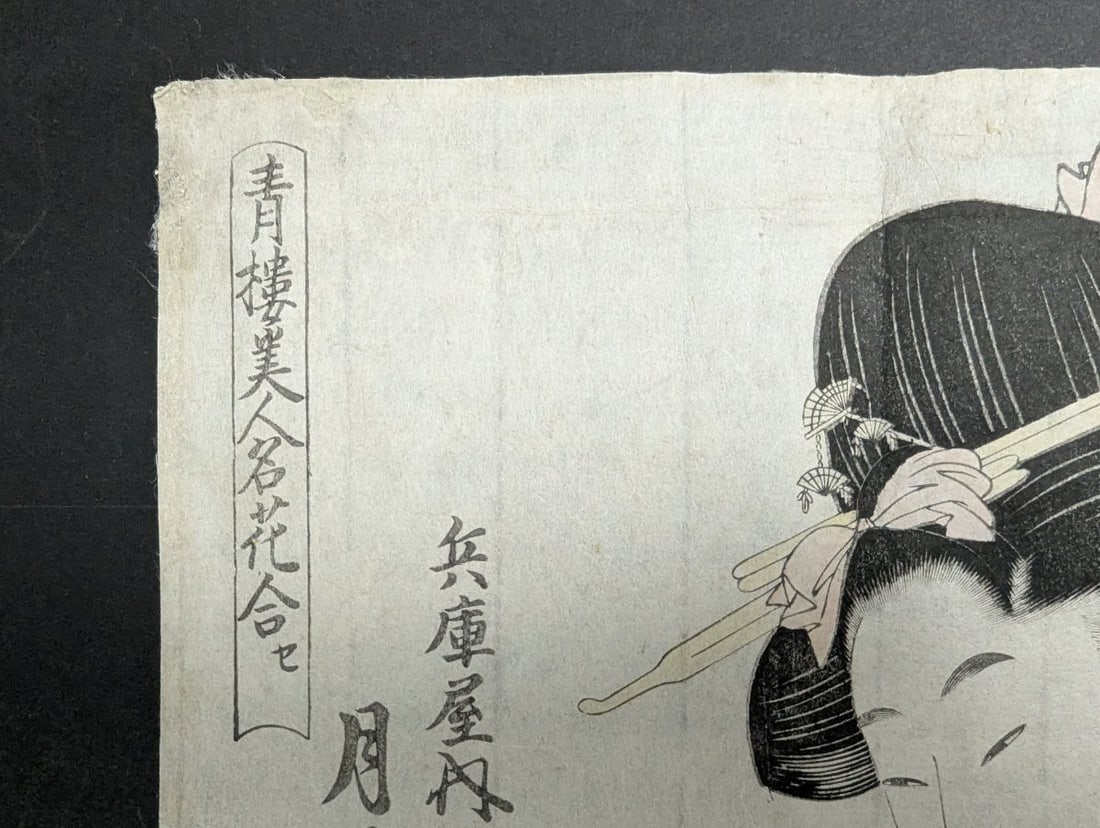 青樓美人名花合セ
兵庫屋内
月